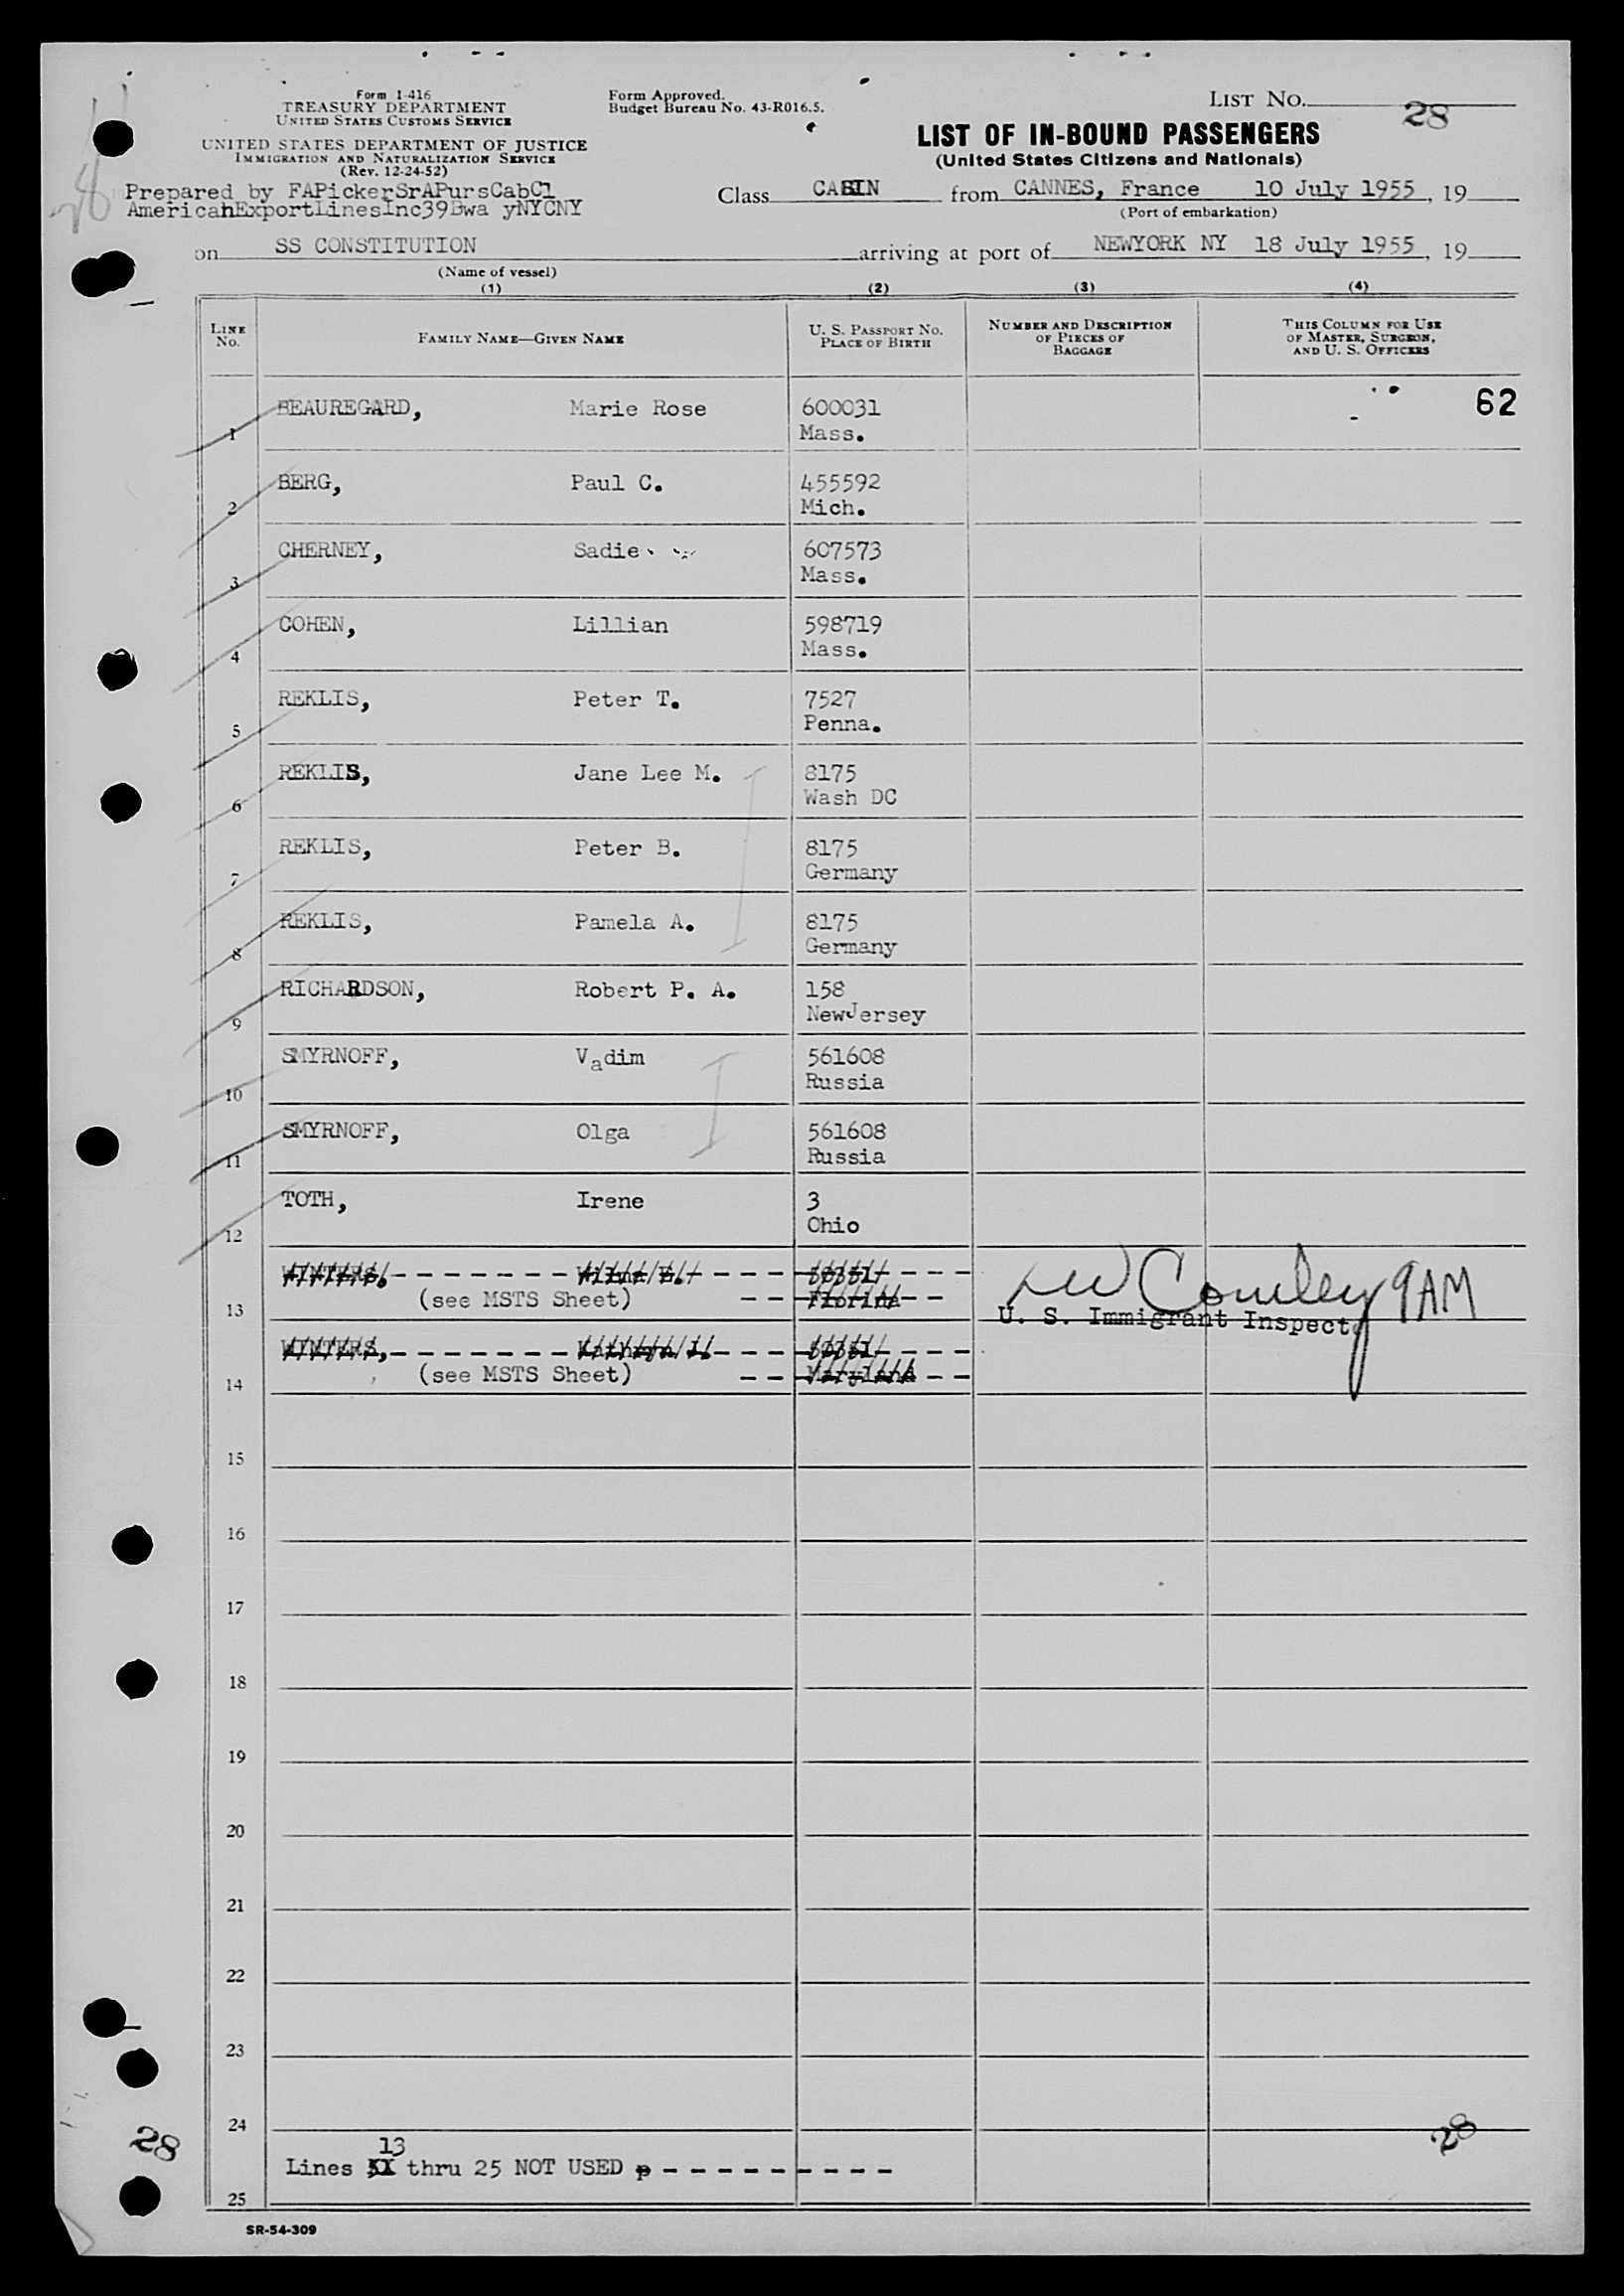 Form I-416
TREASURY DEPARTMENT
UNITED STATES CUSTOMS SERVICE
UNITED STATES DEPARTMENT OF JUSTICE
IMMIGRATION AND NATURALIZATION SERVICE
(Rev. 12-24-52)
Form Approved.
Budget Bureau No. 43-R016.5.
LIST NO. 28
LIST OF IN-BOUND PASSENGERS
(United States Citizens and Nationals)
Prepared by FAPickerSrAPursCabCl
AmericanExportLinesInc39Bwa yNYCNY
Class CABIN from CANNES, France 10 July 1955, 19
(Port of embarkation)
on SS CONSTITUTION arriving at port of NEWYORK NY 18 July 1955, 19
(Name of vessel)
(1) (2) (3) (4)
LINE NO. FAMILY NAME—GIVEN NAME U. S. PASSPORT NO. PLACE OF BIRTH NUMBER AND DESCRIPTION OF PIECES OF BAGGAGE THIS COLUMN FOR USE OF MASTER, SURGEON, AND U. S. OFFICERS
BEAUREGARD, Marie Rose 600031 62
1 Mass.
BERG, Paul C. 455592
2 Mich.
CHERNEY, Sadie 607573
3 Mass.
COHEN, Lillian 598719
4 Mass.
REKLIS, Peter T. 7527
5 Penna.
REKLIS, Jane Lee M. 8175
6 Wash DC
REKLIS, Peter B. 8175
7 Germany
REKLIS, Pamela A. 8175
8 Germany
RICHARDSON, Robert P. A. 158
9 NewJersey
SMYRNOFF, Vadim 561608
10 Russia
SMYRNOFF, Olga 561608
11 Russia
TOTH, Irene 3
12 Ohio
WINTERS,
13 (see MSTS Sheet) Florida
Cowley 9AM
U. S. Immigrant Inspect
WINTERS, Kathryn
14 (see MSTS Sheet) Maryland
15
16
17
18
19
20
21
22
23
24
28
28
13
Lines thru 25 NOT USED
25
SR-54-309